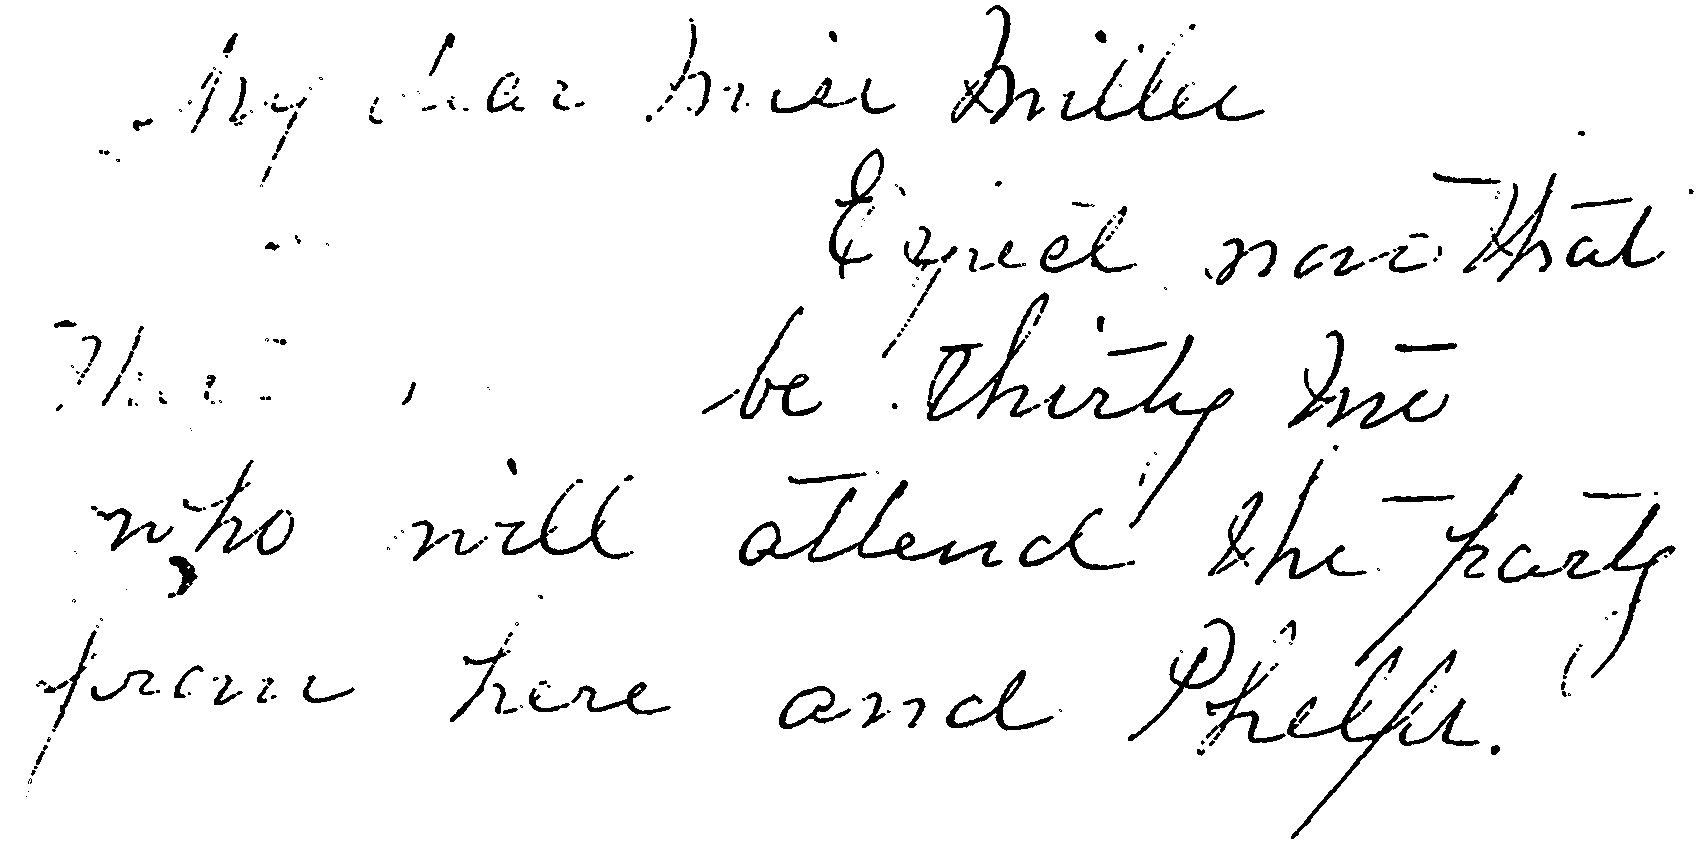 My dear Miss Miller
Expect now that
there be thirty
who will attend the party
from here and Phelps.